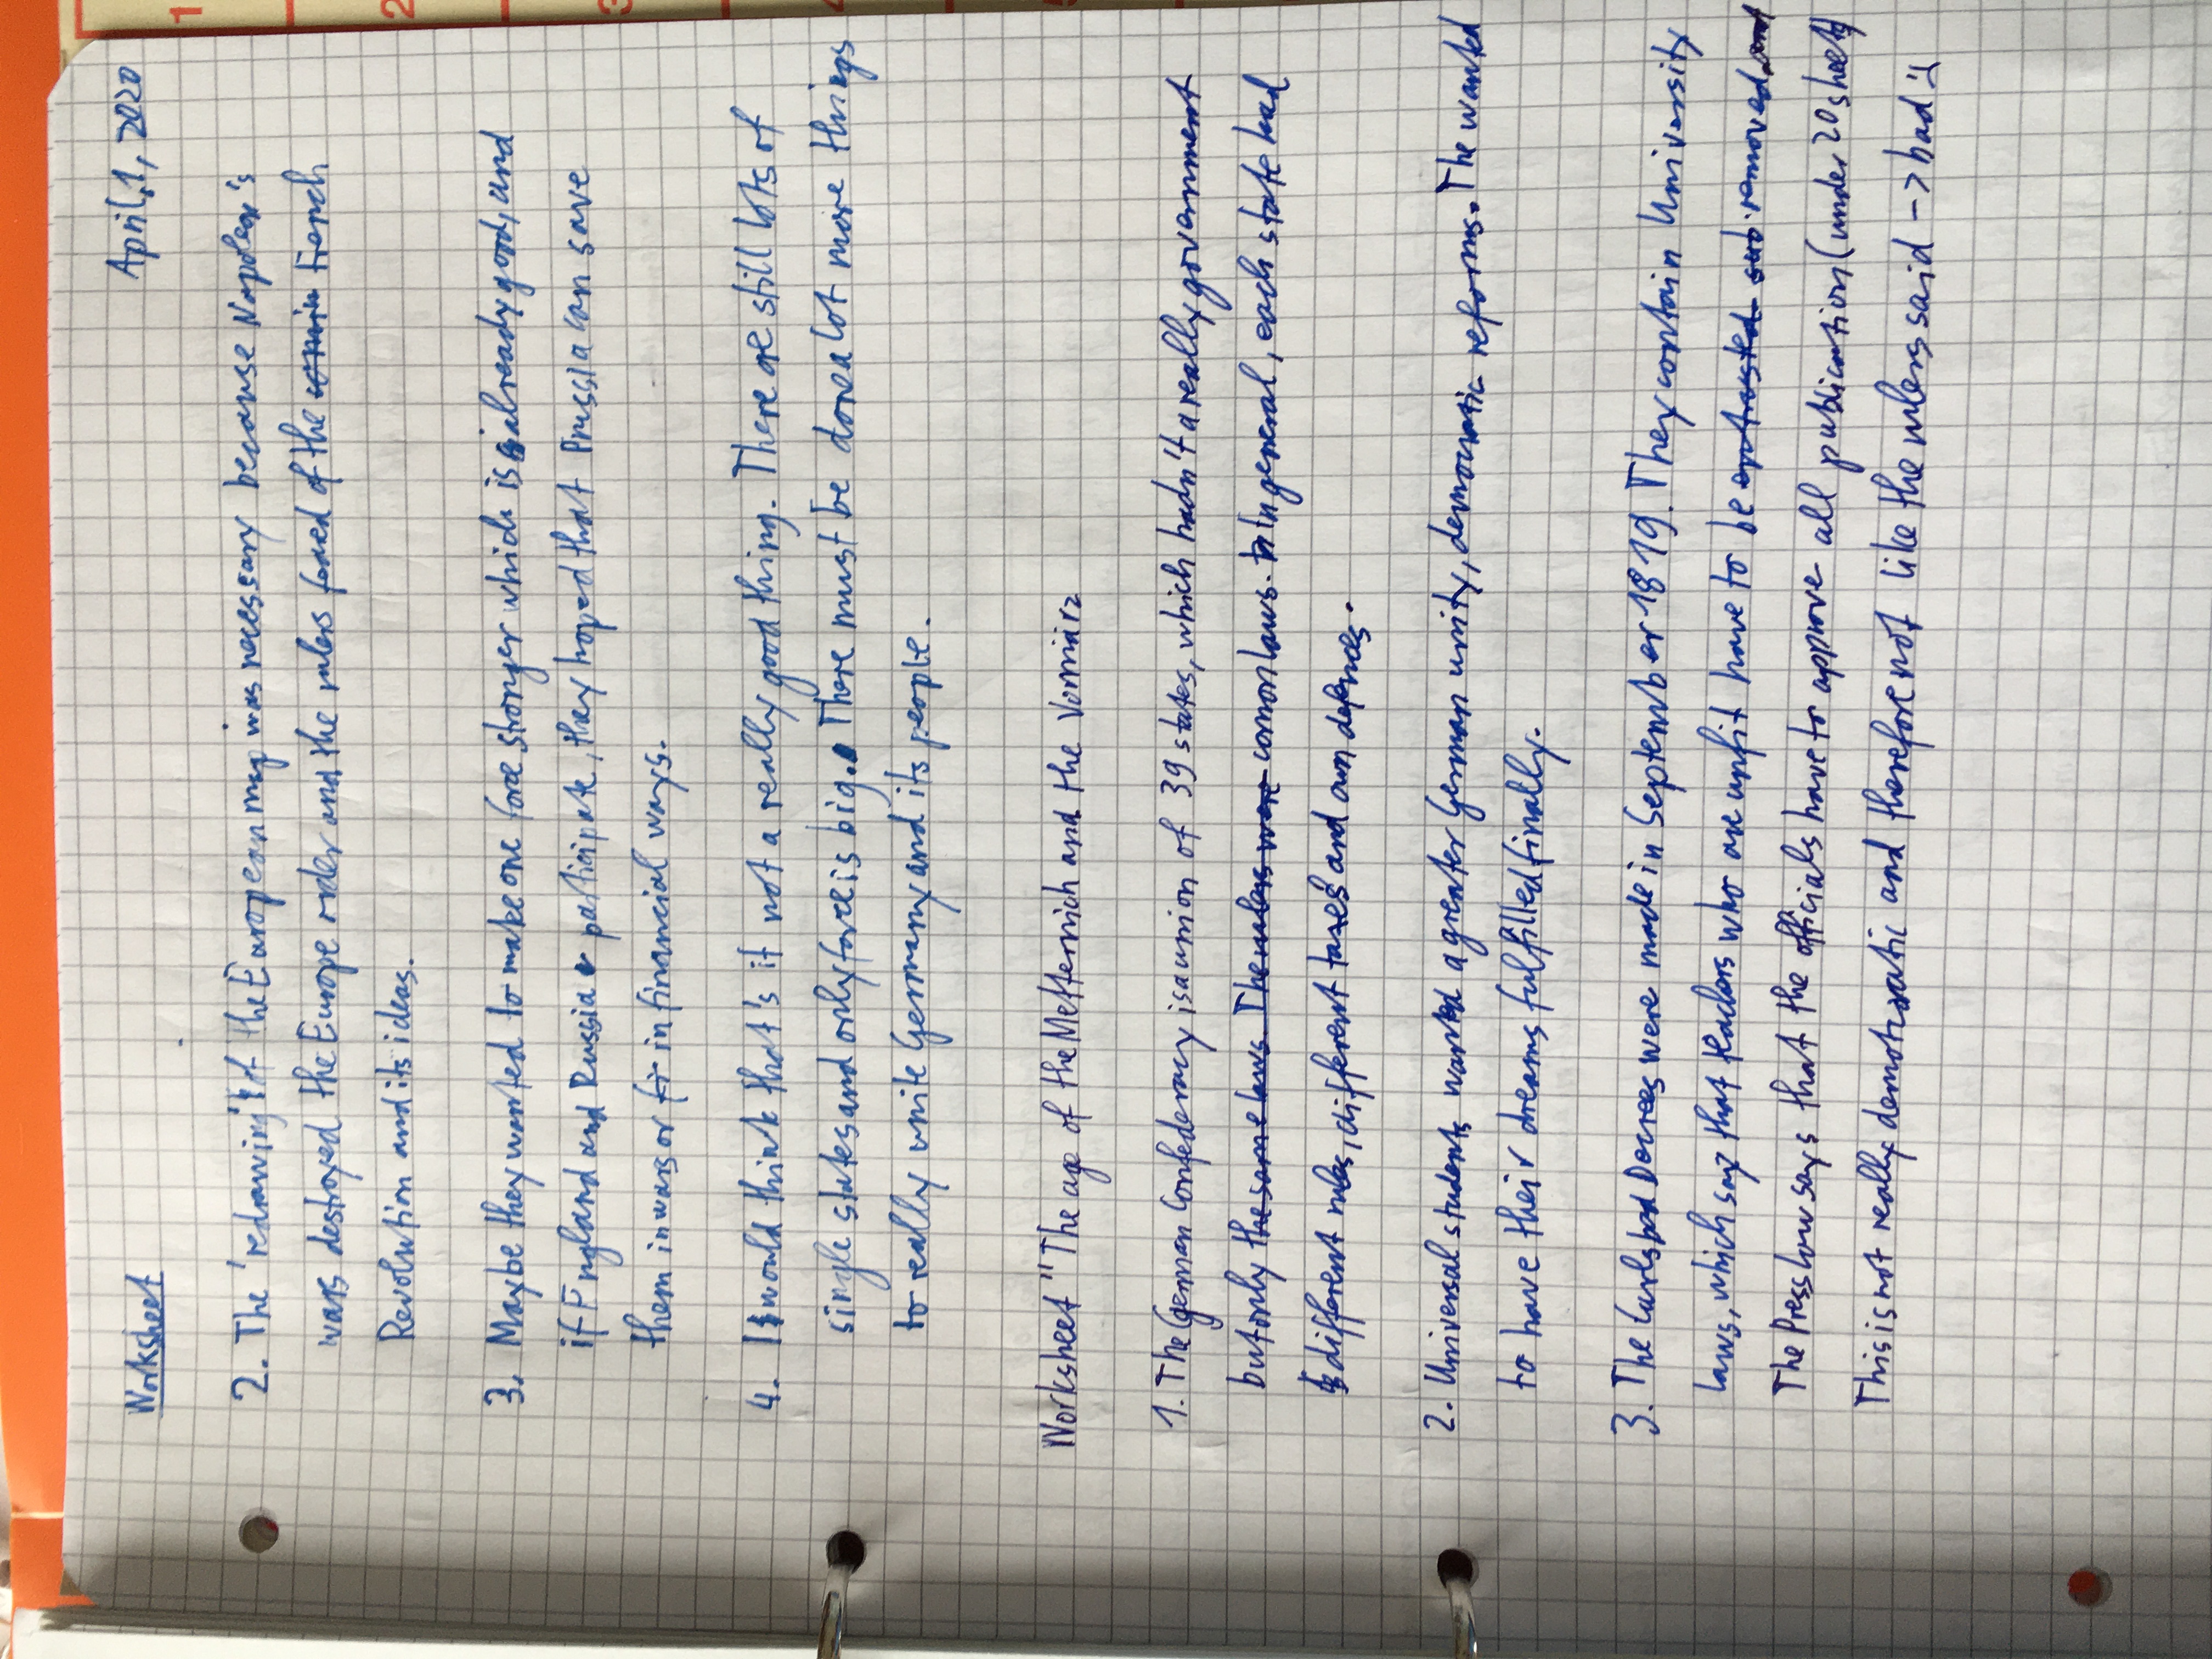 Worksheet
April, 1, 2020
2. The 'redrawing' of the European map was necessary because Napoleon's
wars destroyed the Europe order and the rulers feared of the French
Revolution and its ideas.
3. Maybe they wanted to make one force stronger which is already good, and
if England and Russia participate, they hoped that Prussia can save
them in wars or in financial ways.
4. I would think that's it not a really good thing. There are still lots of
single states and only force is big. There must be done a lot more things
to really unite Germany and its people.
Worksheet "The age of the Metternich and the Vormärz
1. The German Confederacy is a union of 39 states, which hadn't a really government
but only the same laws. The rulers were comon laws. In general, each state had
different rules, different taxes and own defences.
2. Universal students wanted a greater German unity, democratic reforms. The wanted
to have their dreams fulfilled finally.
3. The Carlsbad Decrees were made in September 1819. They contain University
laws, which say that teachers who are unfit have to be entrusted sub removed and
The Press law says that the officials have to approve all publication (under 20 sheets)
This is not really democratic and therefore not like the rulers said -> bad :(
1
2
3
4
5